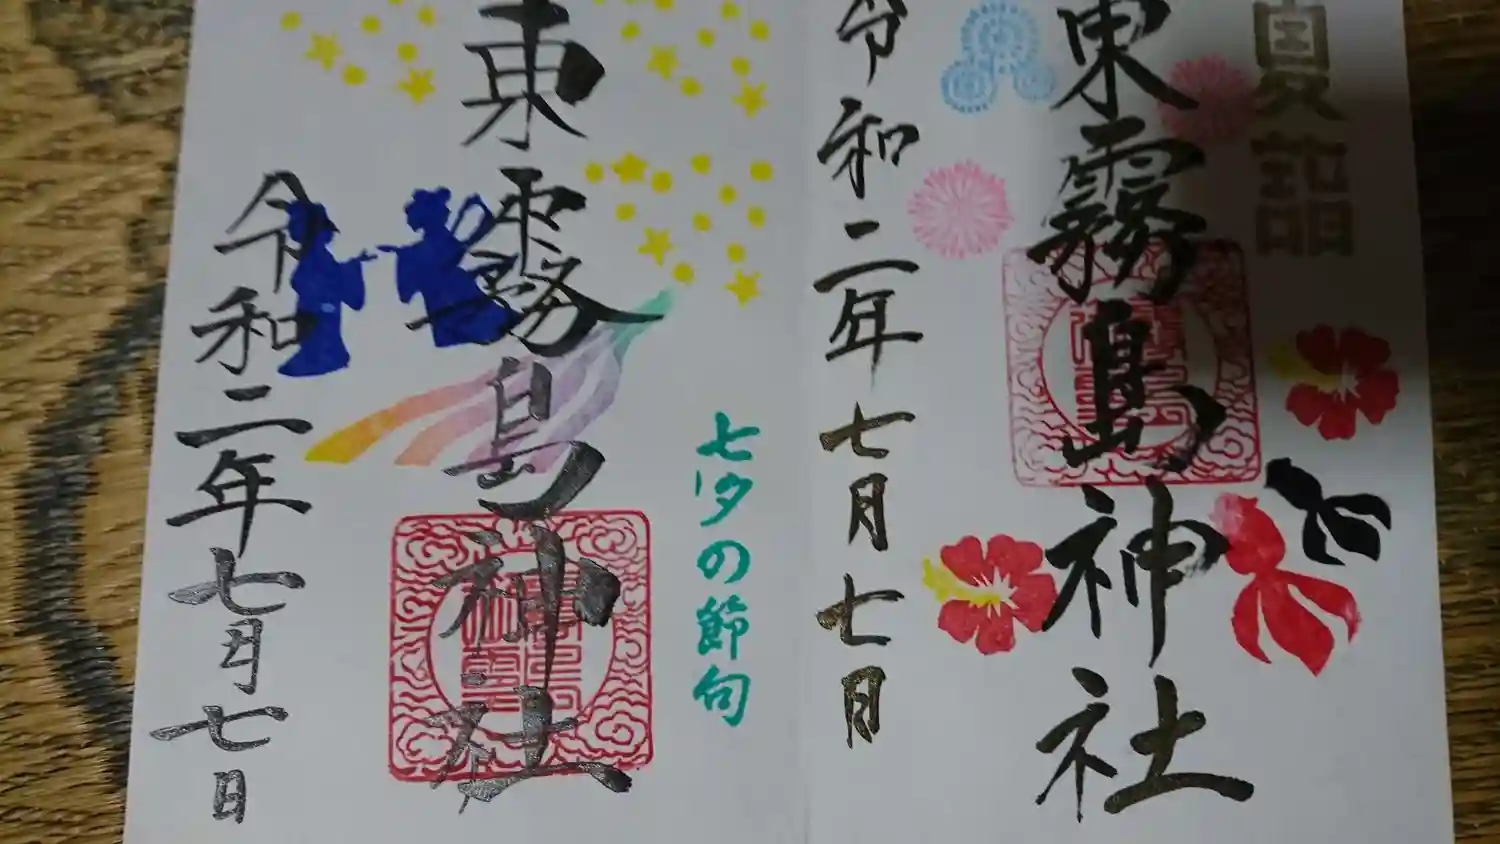 夏詣
東霧島神社
令和二年七月七日
七夕の節句
東霧島神社
令和二年七月七日